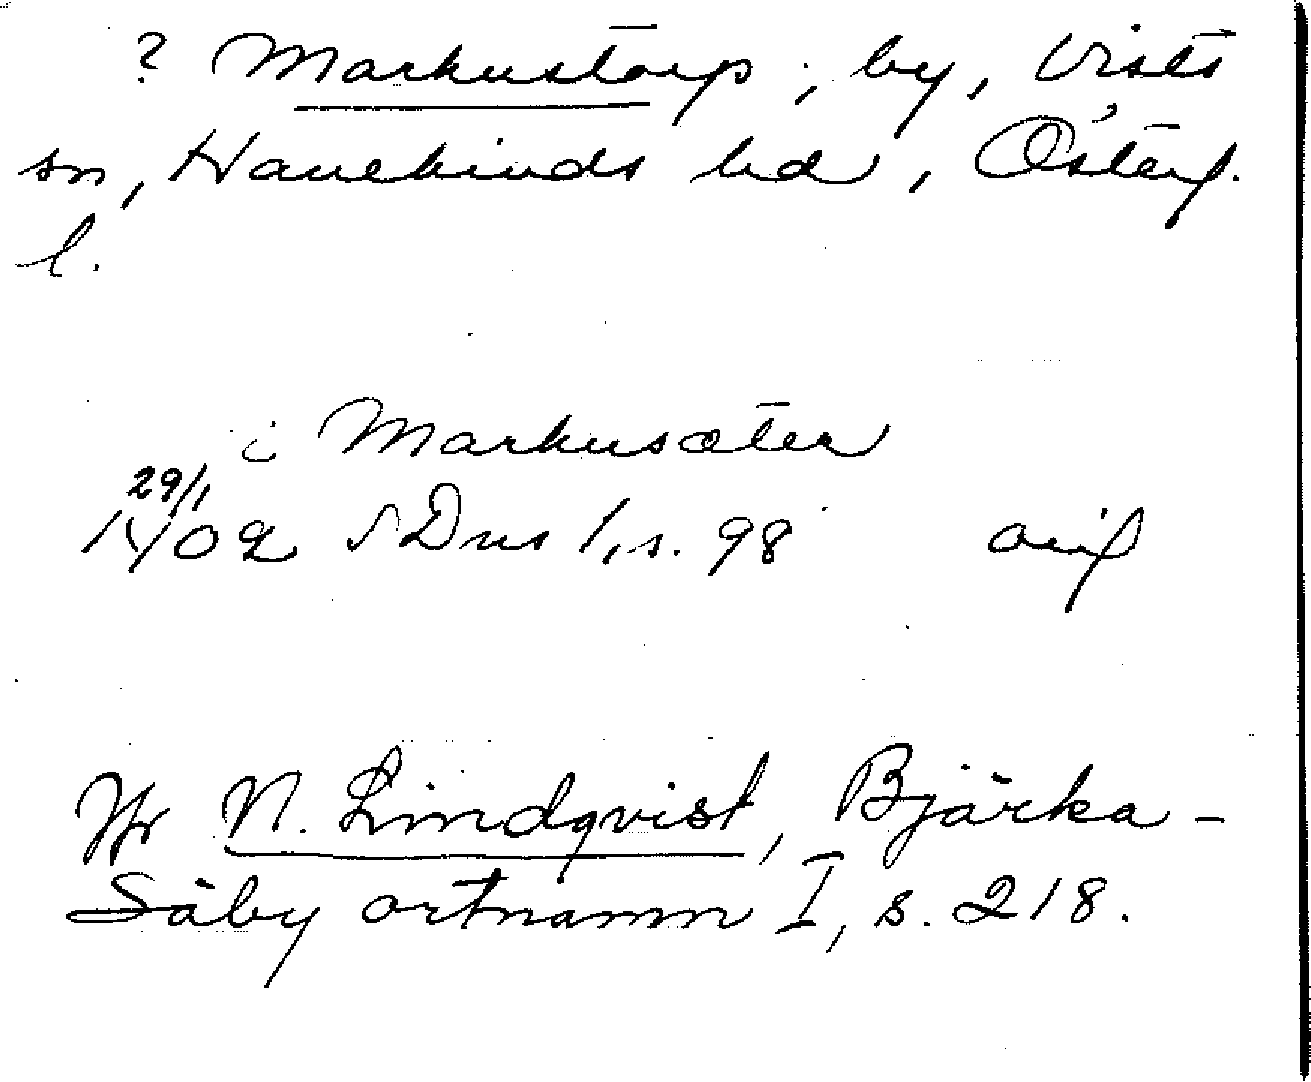 ? Markustorp, by, Vists
sn, Hanekinds hd, Österg.
l.
i Markusæter
29/1
1402 SDns 1, s. 98 avs
Jfr N. Lindqvist, Bjärka-
Säby ortnamn I, s. 218.